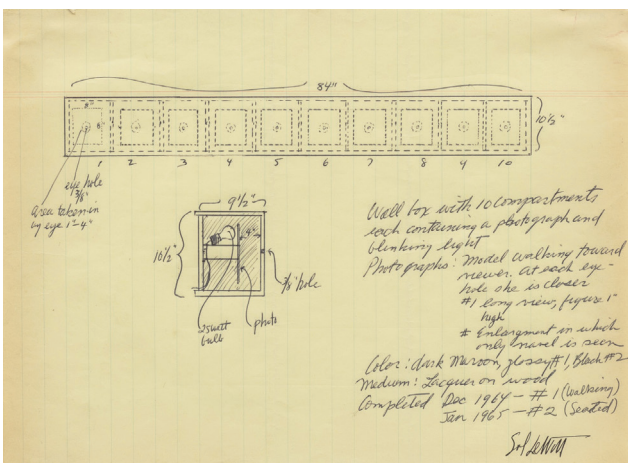 84"
10½"
8"
8"
1 2 3 4 5 6 7 8 9 10
eye hole
3/8"
area taken in
by eye 1"-4"
9½"
10½"
4"
3/8" hole
25watt
bulb
photo
Wall box with 10 compartments
each containing a photograph and
blinking light
Photographs: Model walking toward
viewer. At each eye-
hole she is closer
#1 long view, figure 1"
high
# Enlargment in which
only navel is seen
Color: dark Maroon, glossy #1, Black #2
Medium: Lacquer on wood
Completed Dec 1964 - #1 (Walking)
Jan 1965 - #2 (Seated)
Sol LeWitt